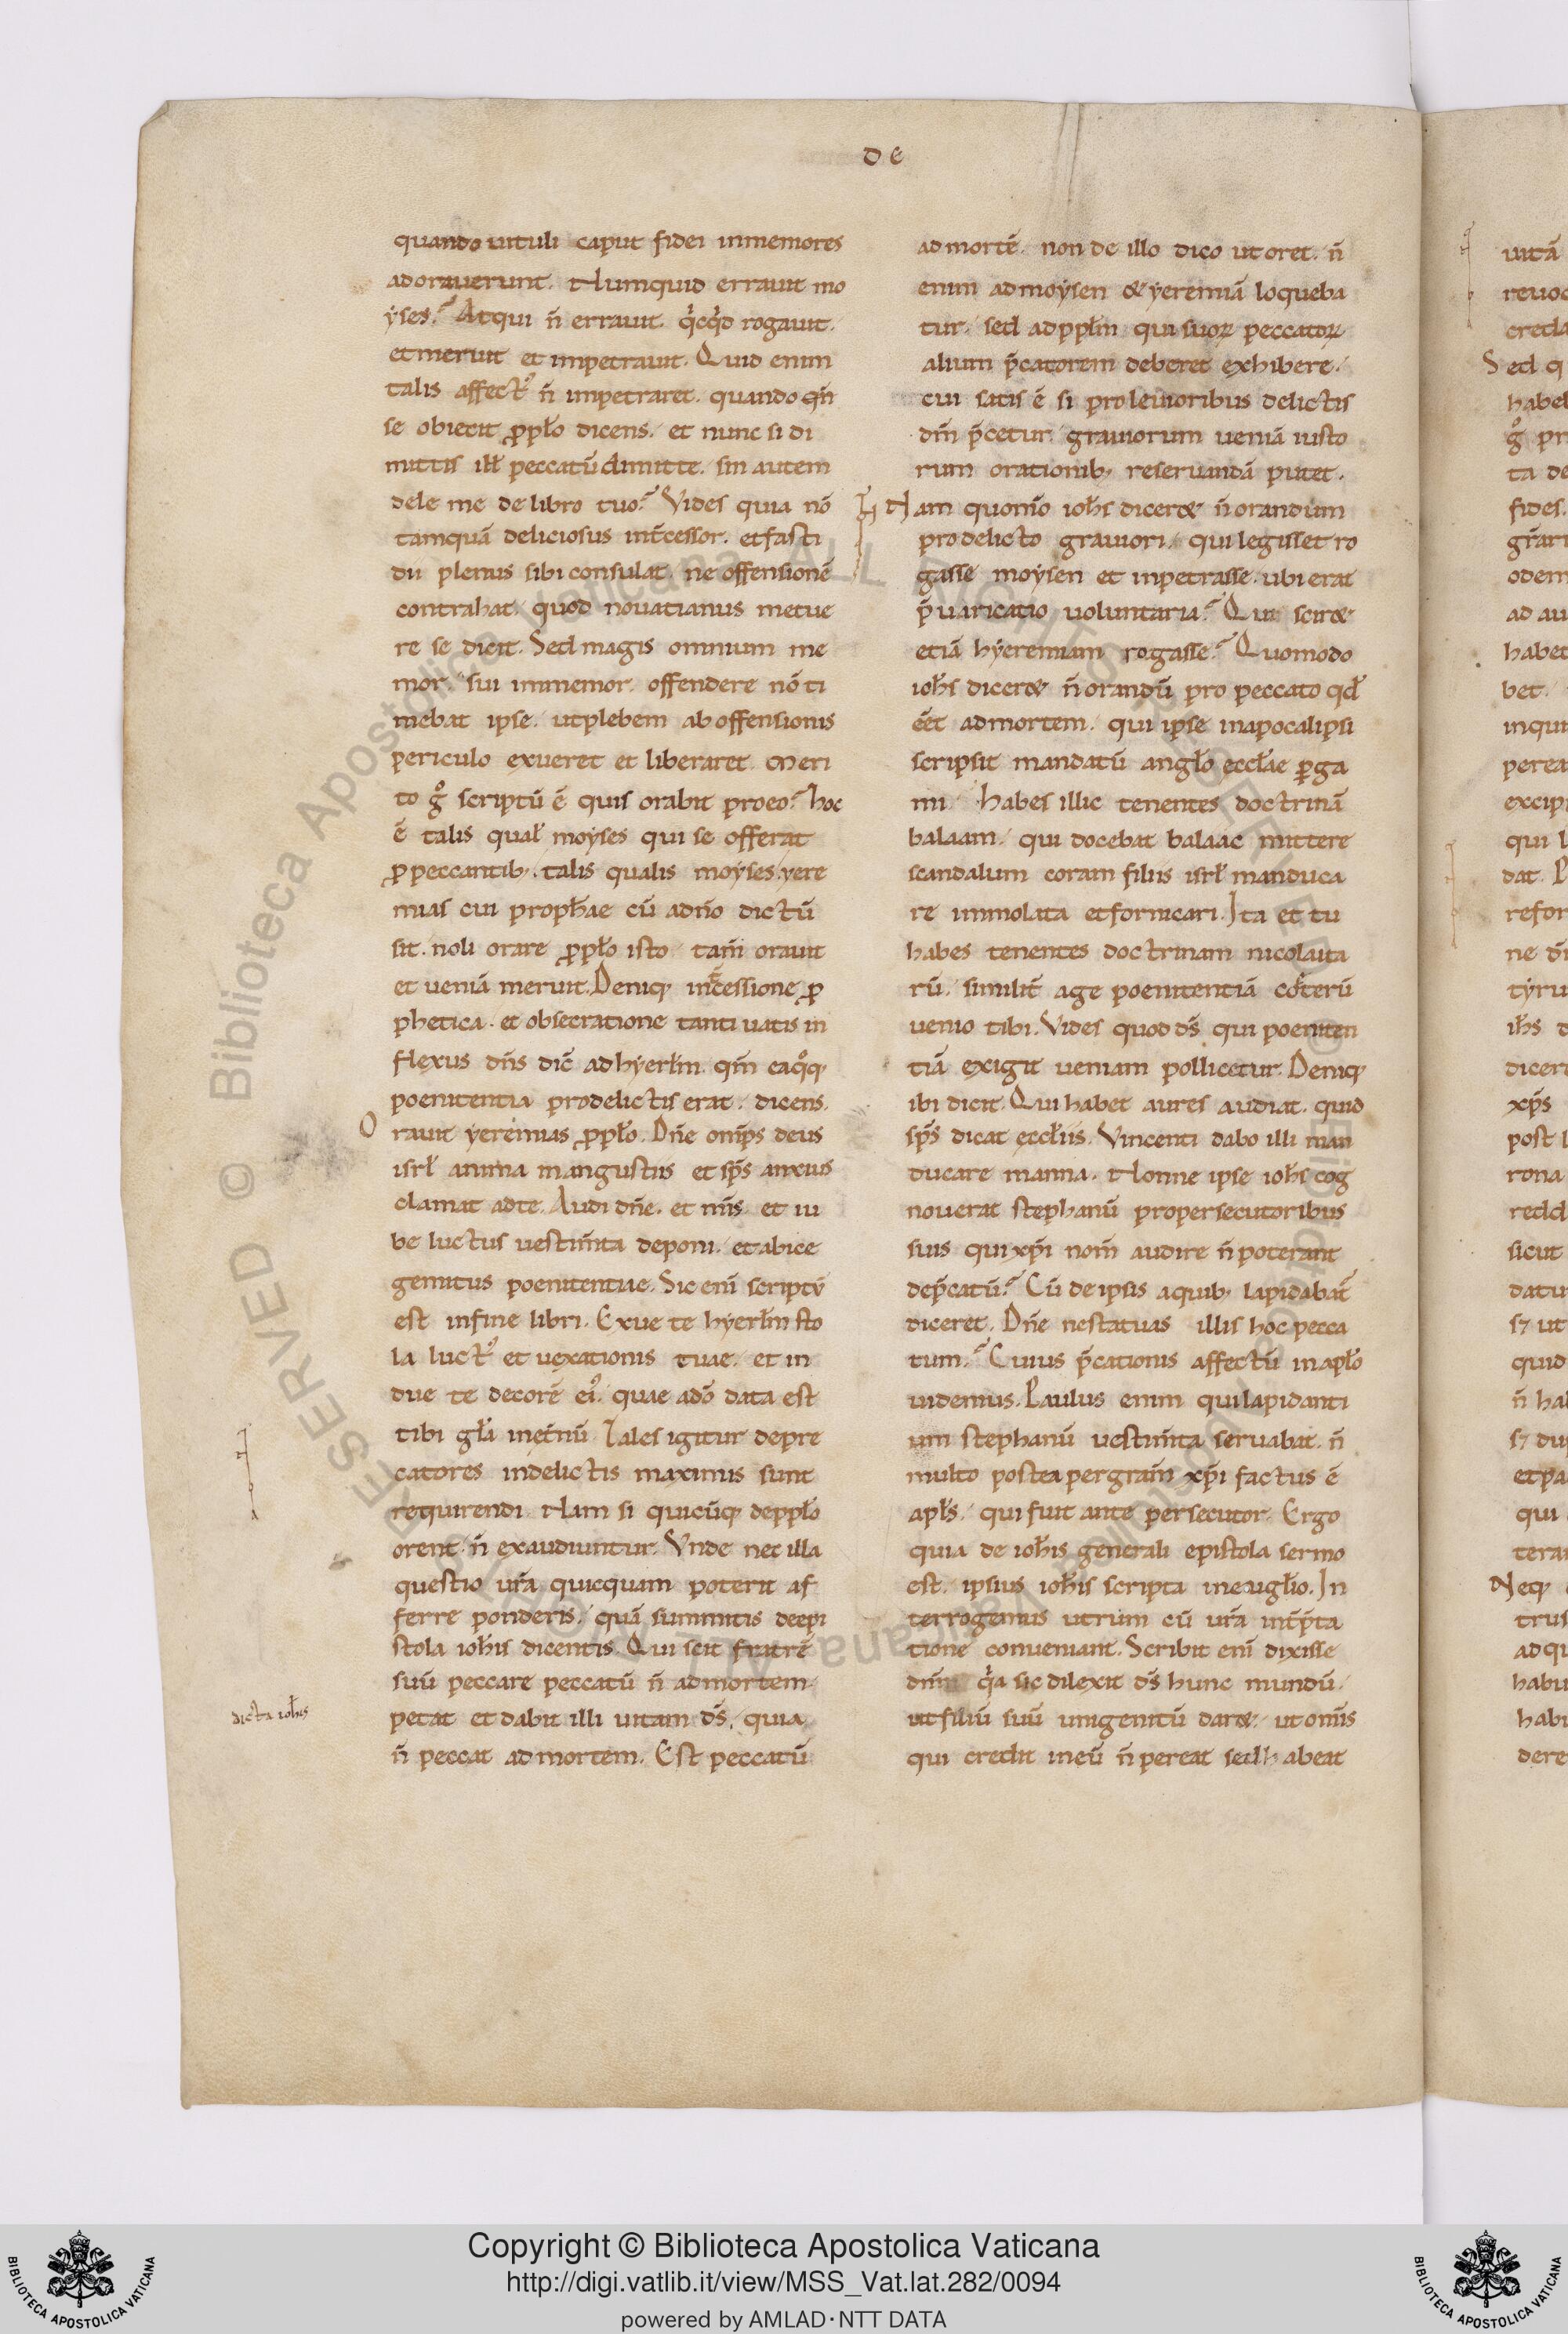 de
quando uituli caput fidei inmemores
adorauerunt. Numquid errauit mo
yses? Atqui n̄ errauit. q̇cq̇d rogauit.
et meruit et impetrauit. Quid enim
talis affect᷒ n̄ impetraret. quando qn̄
se obiecit ꝓppło dicens. et nunc si di
mittis ill̃ peccatū dimitte. sin autem
dele me de libro tuo? Vides quia nō
tamquā deliciosus int̄cessor. et fasti
dii plenus sibi consulat. ne offensionē
contrahat. quod nouatianus metue
re se dicit. Sed magis omnium me
mor. sui immemor. offendere nō ti
mebat ipse. ut plebem ab offensionis
periculo exueret et liberaret. Meri
to g̊ scriptū ē quis orabit pro eo? hoc
ē talis qual̃ moyses qui se offerat
ꝓ peccantib;. talis qualis moyses. yere
mias cui proph̄ae cū ad no dictū
sit. noli orare ꝓpplo isto. tam̄ orauit
et ueniā meruit. Deniq; int̄cessione ꝓ
phetica. et obsecratione tanti uatis in
flexus dn̄s dic̄ ad hyerłm. qm̄ eaq̊q;
poenitentia pro delictis erat. dicens.
O
rauit yeremias ꝓpplo. Dn̄e omp̄s deus
isrł anima in angustiis et sp̄s anxius
clamat ad te. Audi dn̄e. et mis̄. et iu
be luctus uestim̄ta deponi. et abice
gemitus poenitentiae. Sic eni̅ scriptū
est in fine libri. Exue te hyerłm sto
la luct᷒ et uexationis tuae. et in
due te decorē ei᷒. quae a do̅ data est
tibi gła in et̄nū. Tales igitur depre
catores in delictis maximis sunt
requirendi. Nam si quicūq; de pplo
orent. n̄ exaudiuntur. Vnde nec illa
questio ur̄a quicquam poterit af
ferre ponderis. quā summitis de epi
stola ioh̄is dicentis. Qui scit fratrē
suū peccare peccatū n̄ ad mortem.
dicta ioh̄is
petat et dabit illi uitam ds̄. quia
n̄ peccat ad mortem. Est peccatū
ad mortē. non de illo dico ut oret. n̄
enim ad moysen & yeremiā loqueba
tur. sed ad ppłm qui suoꝝ peccatoꝝ
alium p̄catorem deberet exhibere.
cui satis ē si pro leuioribus delictis
dm̄ p̄cetur. grauiorum ueniā iusto
rum orationib; reseruandā putet.
Nam quom̄o ioh̄s dicer& n̄ orandum
pro delicto grauiori. qui legisset ro
gasse moysen et inpetrasse. ubi erat
p̄uaricatio uoluntaria? Qui scir&
etiā hyeremiam rogasse? Quomodo
ioh̄s dicer& n̄ orandū pro peccato qd̃
ēet ad mortem. qui ipse in apocalipsi
scripsit mandatū angło eccłae ꝑga
mi. Habes illic tenentes doctrinā
balaam. qui docebat balaac mittere
scandalum coram filiis isrł manduca
re immolata et fornicari. Ita et tu
habes tenentes doctrinam nicolaita
rū. similit̄ age poenitentiā cet̄erū
uenio tibi. Vides quod ds̄ qui poeniten
tiā exigit ueniam pollicetur. Deniq;
ibi dicit. Qui habet aures audiat. quid
sp̄s dicat eccłiis. Vincenti dabo illi man
ducare manna. Nonne ipse ioh̄s cog
nouerat stephanū pro persecutoribus
suis qui xp̄i nom̄ audire n̄ poterant
dep̄catū? Cū de ipsis a quib; lapidabat̄
diceret. Dn̄e ne statuas illis hoc pecca
tum? Cuius p̄cationis affectū in apło
uidemus. Paulus enim qui lapidanti
um stephanū uestim̄ta seruabat. n̄
multo postea per gram̄ xp̄i factus ē
apłs. qui fuit ante persecutor. Ergo
quia de ioh̄is generali epistola sermo
est. ipsius ioh̄is scripta in euglio. In
terrogemus utrum cū ur̄a int̄p̄ta
tione conueniant. Scribit eni̅ dixisse
dn̄m q̇a sic dilexit ds̄ hunc mundū.
ut filiū suū unigenitū dar&. ut omīs
qui credit in eū n̄ pereat sed habeat
uitā
reuoc
creda
Sed q
habe
g̊ pr
ta de
fides.
grar
odem
ad au
habet
bet.
inqui
perea
excip
qui l
dat. P
refor
ne dn̄
tyru
ih̄s d
dicer
xp̄s
post
rona
redd
sicut
datu
s; ut
quid
n̄ ha
s; du
et pa
qui
tera
Neq;
trus
ad qu
habu
habi
dere
Copyright © Biblioteca Apostolica Vaticana
http://digi.vatlib.it/view/MSS_Vat.lat.282/0094
powered by AMLAD·NTT DATA
BIBLIOTECA APOSTOLICA VATICANA
BIBLIOTECA APOSTOLICA VATICANA